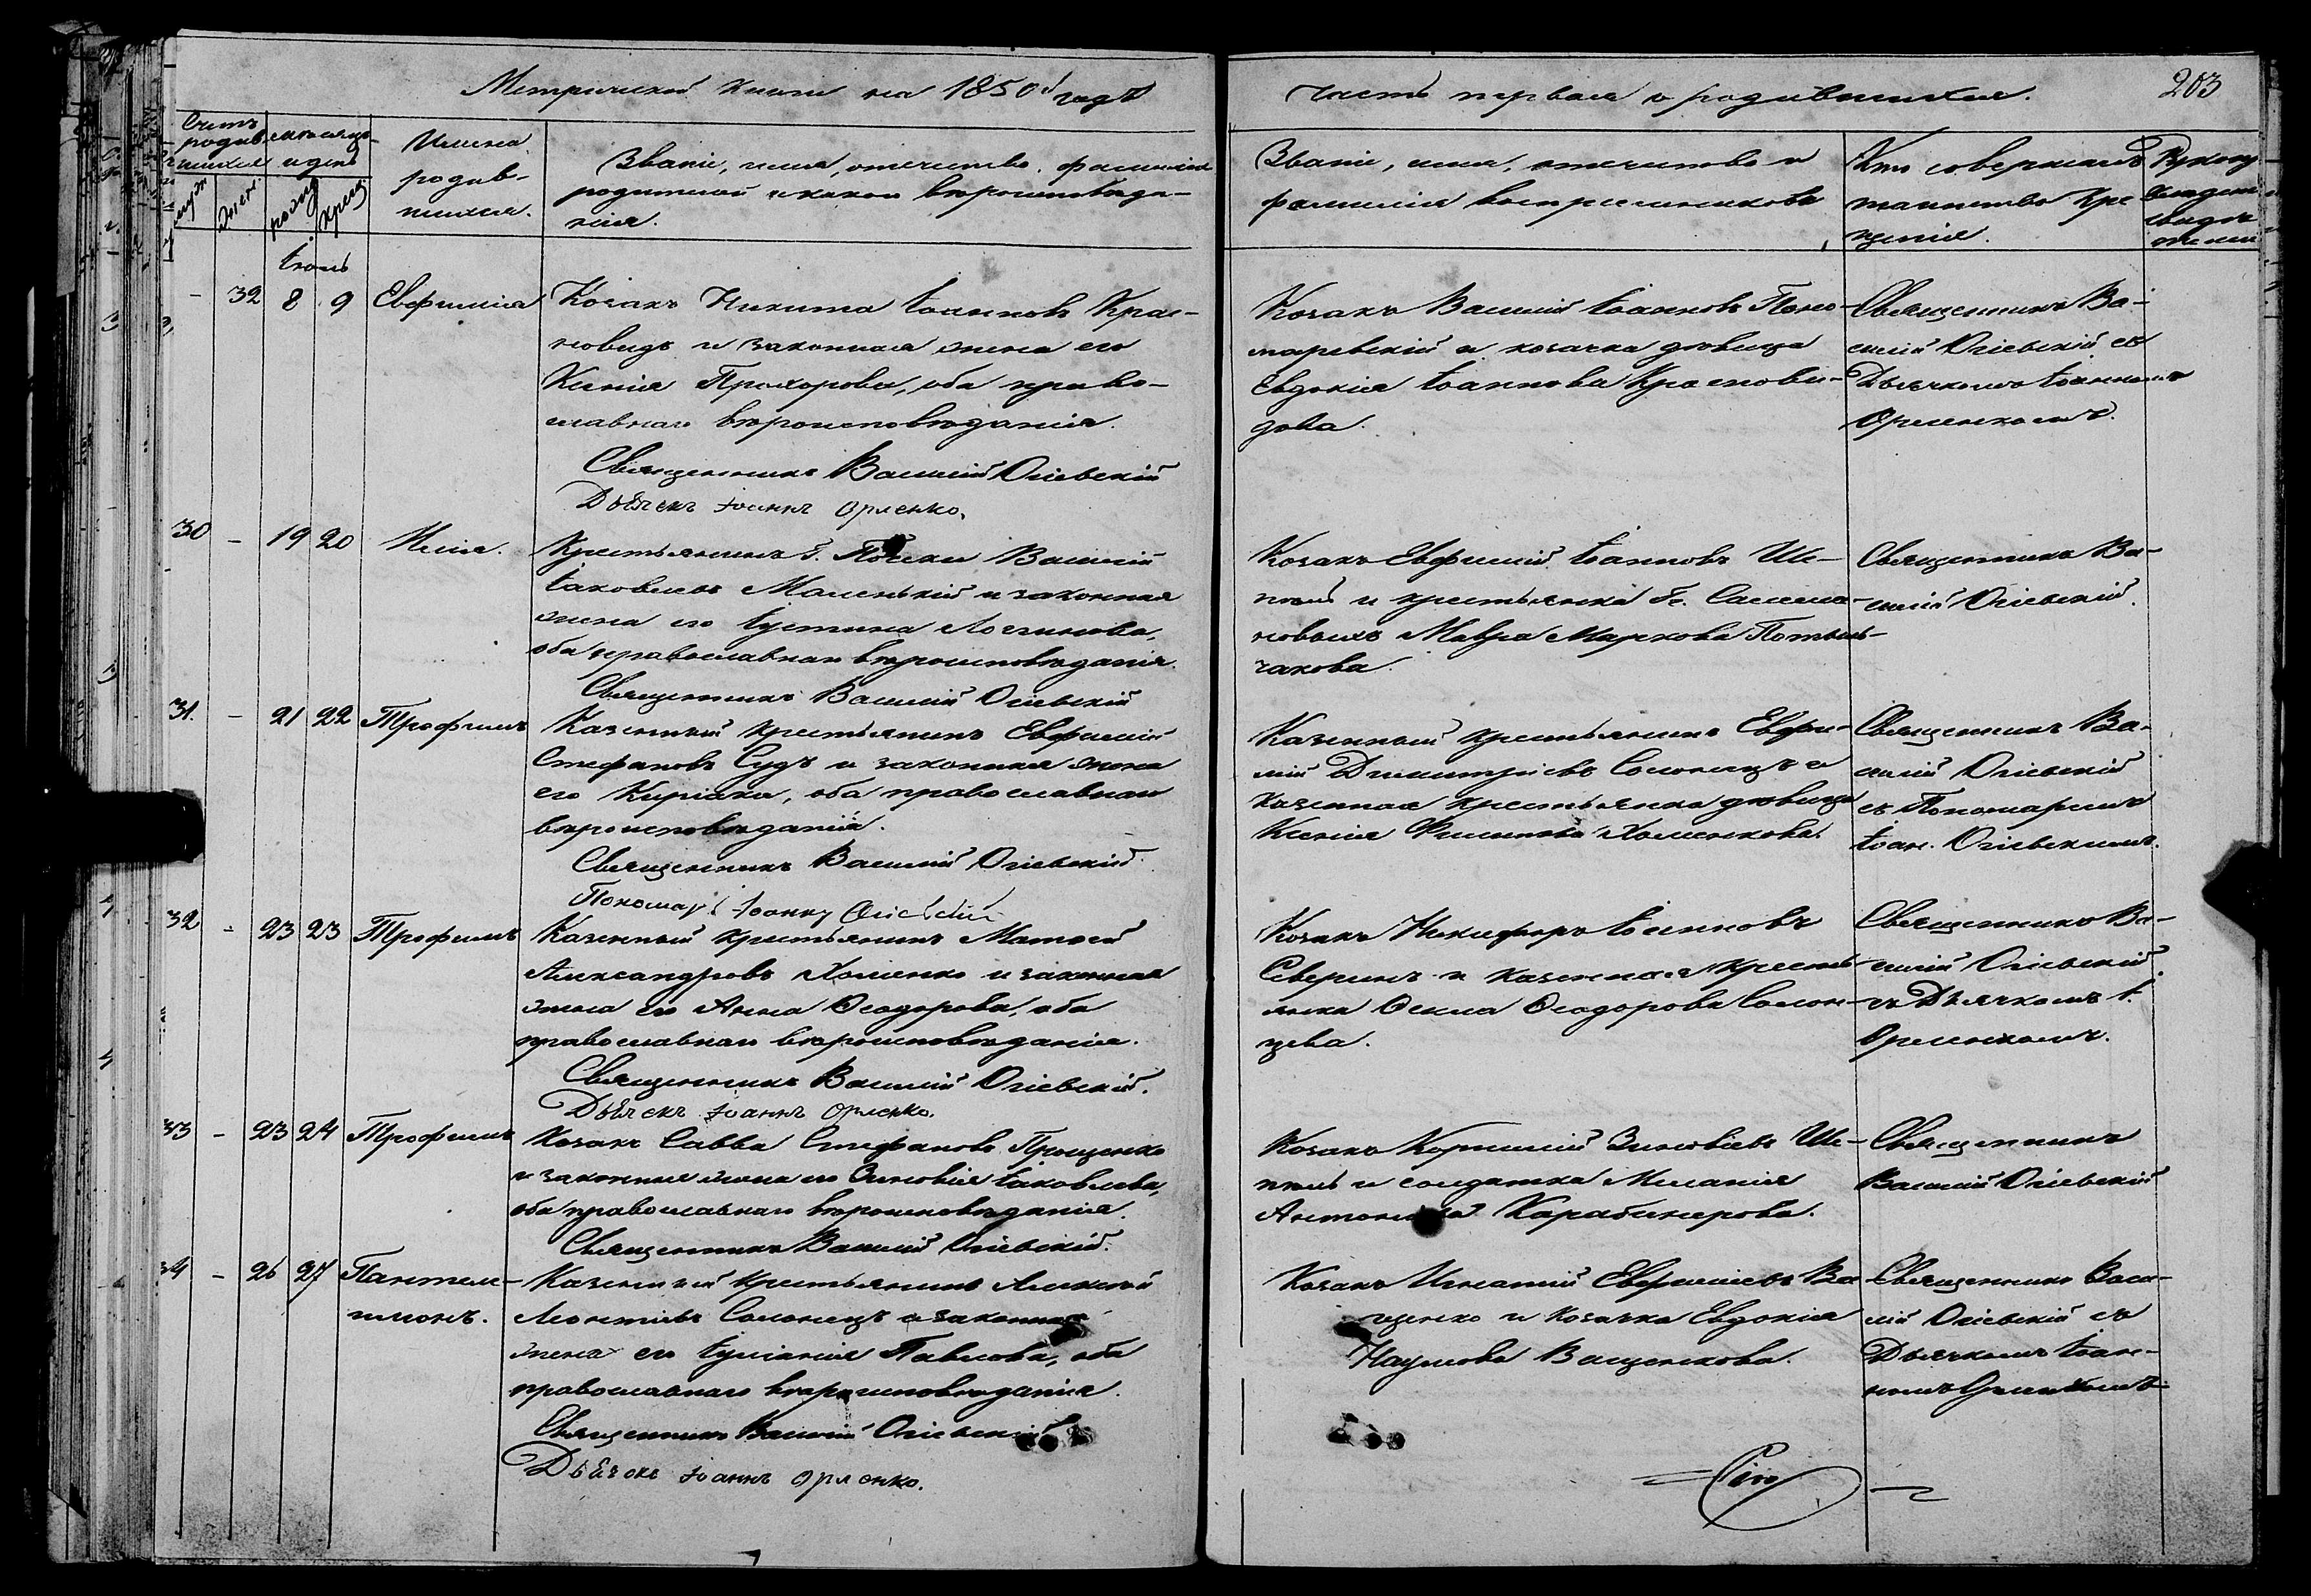 Метрической книги на 1850й годъ
Часть первая о родившихся.
203
Счетъ родив-шихся
муж. жен.
мѣсяцъ и день
рожд. крещ.
Имена
родив-
шихся.
Званіе, имя, отечество, фамилія
родителей и какого вѣроисповѣда-
нія.
Званіе, имя, отечество и
фамилія воспріемниковъ
Кто совершалъ
таинство Кре
щенія.
Іюль
- 32 8 9 Евфимія
Козакъ Никита Іоанновъ Крас-
новидъ и законная жена его
Ксенія Прохорова, оба право-
славнаго вѣроисповѣданія.
Священникъ Василій Огіевскій
Дьячекъ Іоаннъ Орленко.
Козакъ Василій Іоанновъ Поно-
маревскій и козачка дѣвица
Евдокія Іоаннова Краснови-
дова.
Священникъ Ва-
силій Огіевскій съ
Дьячкомъ Іоанномъ
Орленкомъ.
30 - 19 20 Илія.
Крестьянинъ Г. Василій
Іаковлевъ Маленькій и законная
жена его Іустина Логинова,
оба православнаго вѣроисповѣданія.
Священникъ Василій Огіевскій
Козакъ Евфимій Іоанновъ Ше-
пель и крестьянка Гг. Селима-
новыхъ Мавра Маркова Потыль-
чакова.
Священникъ Ва-
силій Огіевскій.
31. - 21 22 Трофимъ
Казенный крестьянинъ Евфимій
Стефановъ Судъ и законная жена
его Киріака, оба православнаго
вѣроисповѣданія.
Священникъ Василій Огіевскій.
Пономарь Іоаннъ Огіевскій
Казенный крестьянинъ Евфи-
мій Димитріевъ Солонецъ и
казенная крестьянка дѣвица
Ксенія Филипова Хоменкова.
Священникъ Ва-
силій Огіевскій
съ Пономаремъ
Іоан. Огіевскимъ.
32 - 23 23 Трофимъ
Казенный крестьянинъ Матѳей
Александровъ Хоменко и законная
жена его Анна Ѳеодорова, оба
православнаго вѣроисповѣданія.
Священникъ Василій Огіевскій.
Дьячекъ Іоаннъ Орленко.
Козакъ Никифоръ Іоанновъ
Северинъ и казенная кресть-
янка Ѳекла Ѳеодорова Солон-
цева.
Священникъ Ва-
силій Огіевскій
съ Дьячкомъ І.
Орленкомъ.
33 - 23 24 Трофимъ
Козакъ Савва Стефановъ Прощенко
и законная жена его Зиновія Іаковлева,
оба православнаго вѣроисповѣданія.
Священникъ Василій Огіевскій.
Козакъ Корнилій Зиновіевъ Ше-
пель и солдатка Меланія
Антонова Карабинерова.
Священникъ
Василій Огіевскій
34 - 26 27 Пантеле-
имонъ.
Казенный крестьянинъ Алексей
Леонтіевъ Солонецъ и законная
жена его Іуліанія Павлова, оба
православнаго вѣроисповѣданія.
Священникъ Василій Огіевскій
Дьячокъ Іоаннъ Орленко.
Козакъ Игнатій Евфиміевъ Ва-
щенко и козачка Евдокія
Наумова Ващенкова.
Священникъ Васи-
лій Огіевскій съ
Дьячкомъ Іоан-
номъ Орленкомъ